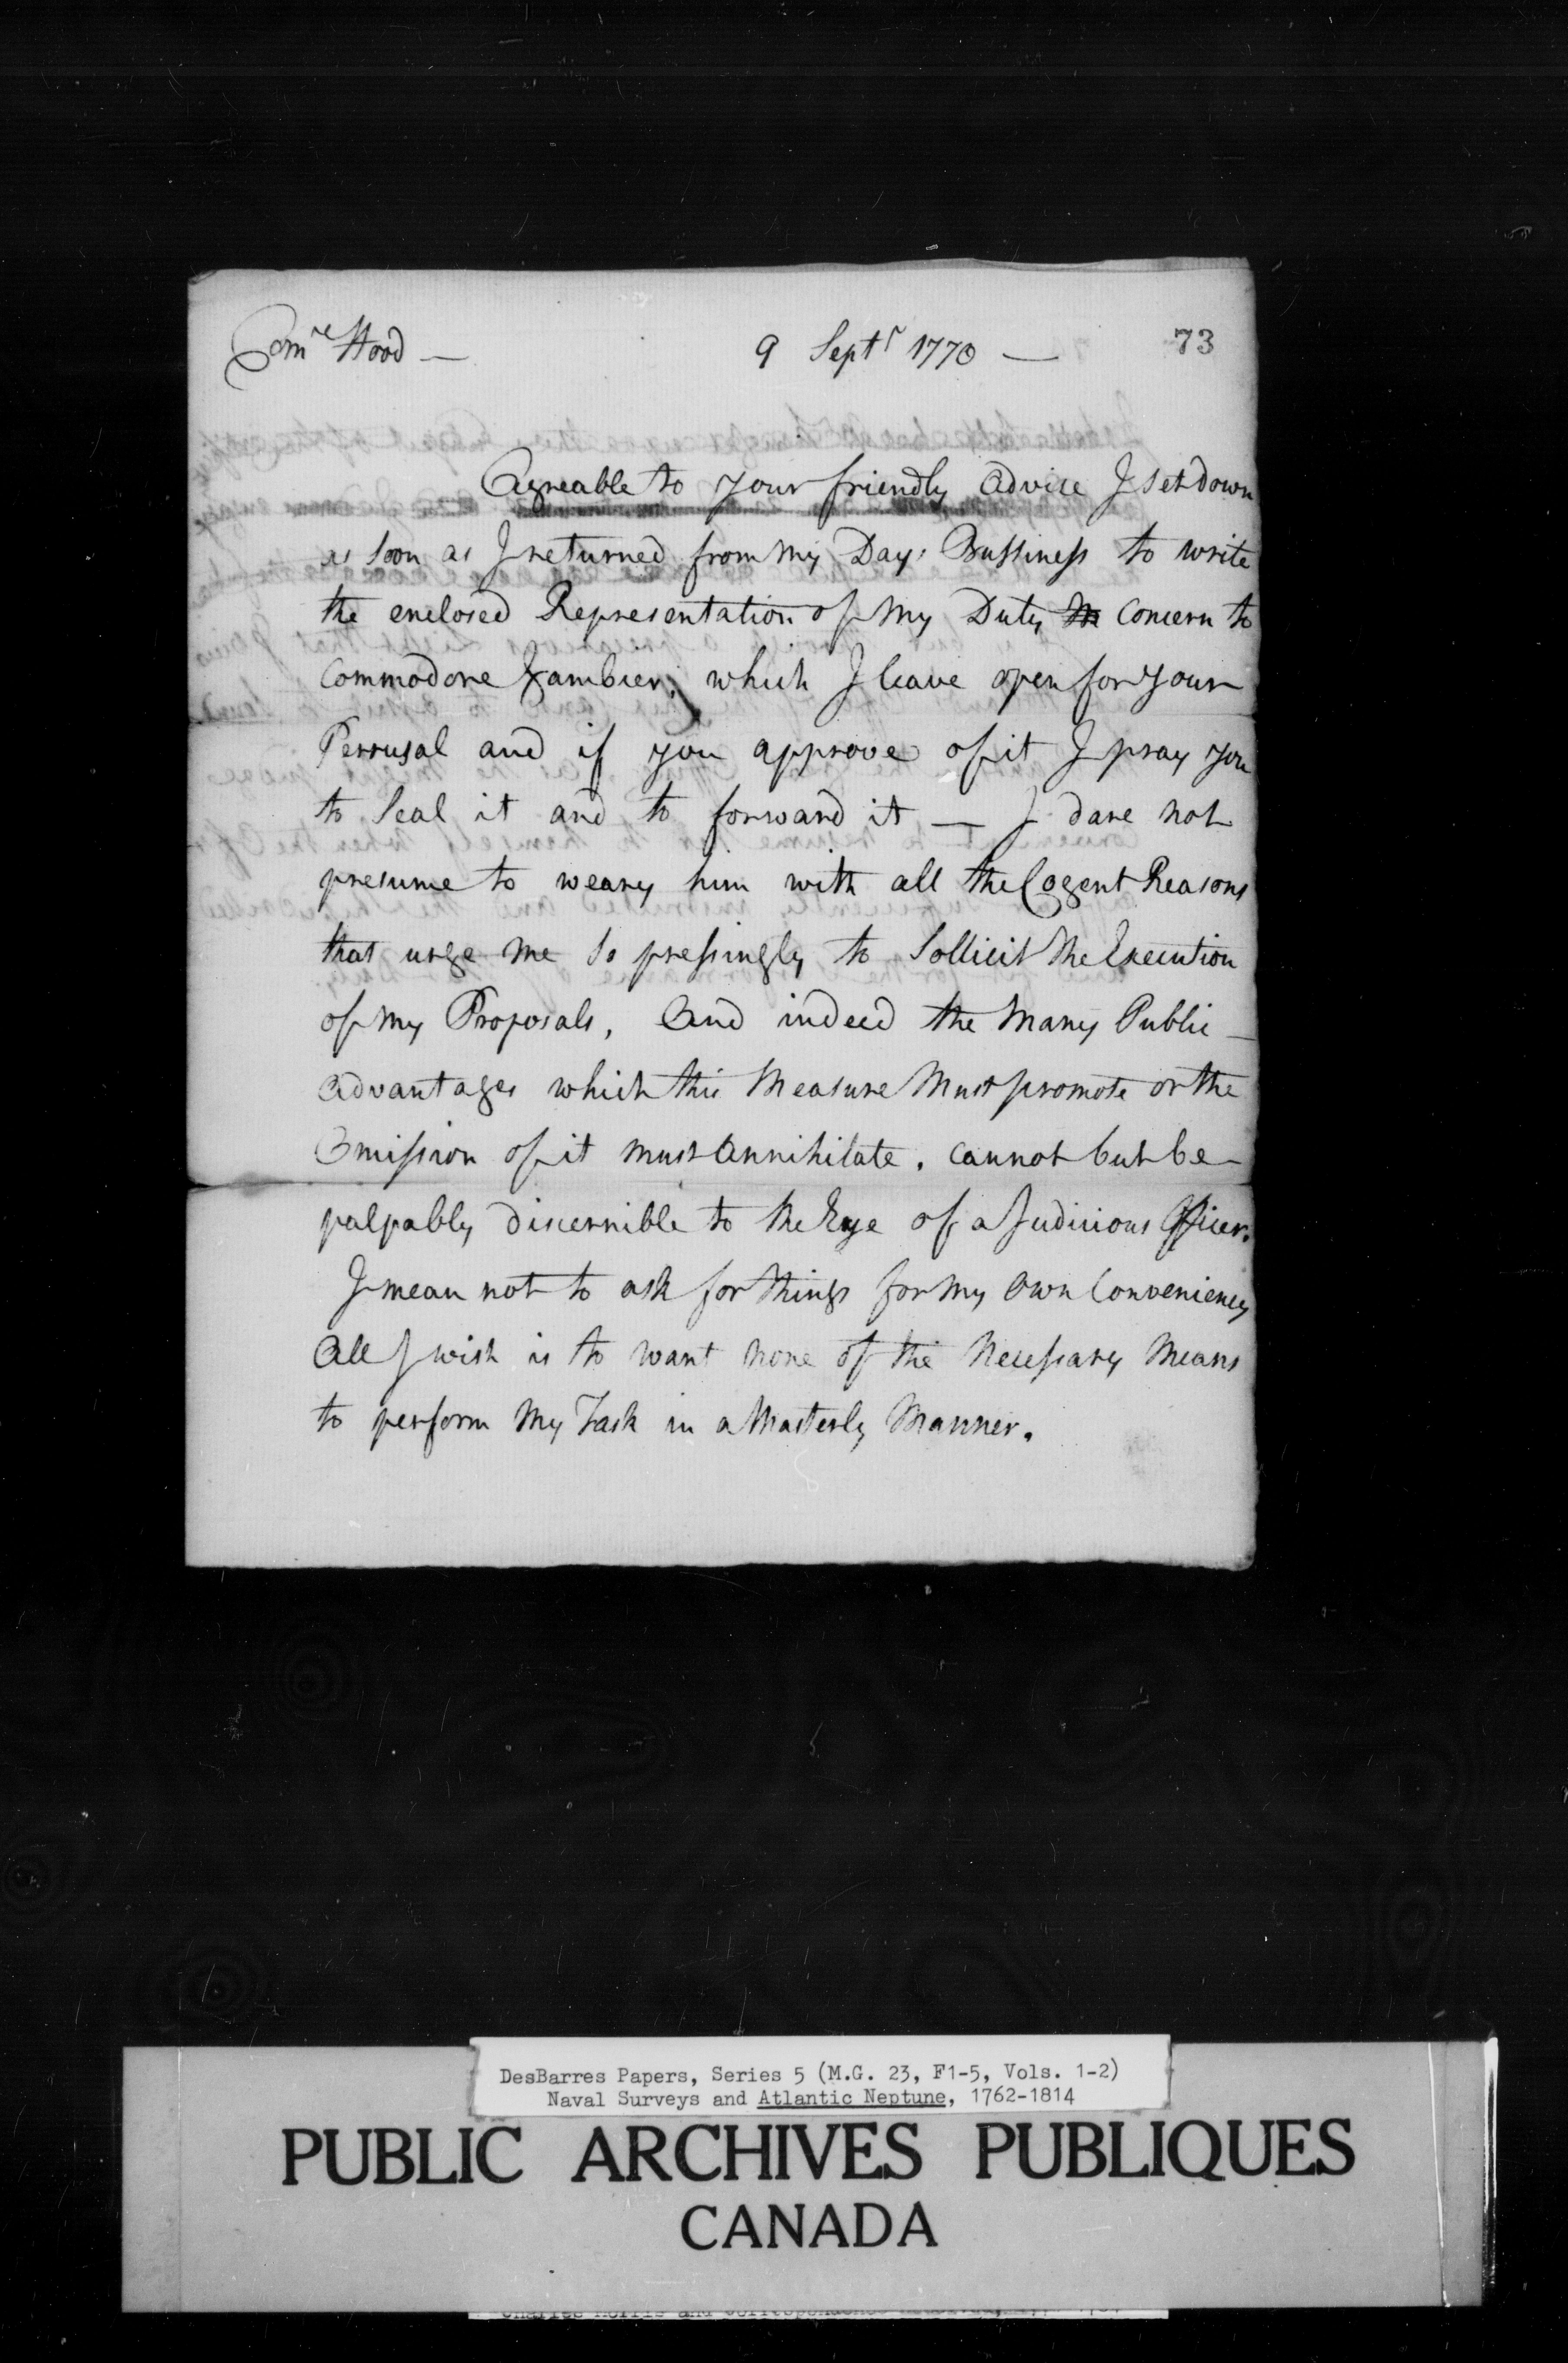 Comre Hood — 9 Septr 1770 — 73
Agreable to your friendly advice I set down
as soon as I returned from my Days Bussiness to write
the enclosed Representation of my Duty concern to
Commodore Gambier, which I leave open for your
Perrusal and if you approve of it I pray you
to Seal it and to forward it — I dare not
presume to weary him with all the Cogent Reasons
that urge me so pressingly to Sollicit the Execution
of my Proposals, And indeed the many Public
advantages which this Measure Must promote or the
Omission of it must Annihilate, cannot but be
palpably discernible to the Eye of a Judicious Officer.
I mean not to ask for things for my own Conveniency
All I wish is to want none of the Necessary Means
to perform My Task in a Masterly Manner.
DesBarres Papers, Series 5 (M.G. 23, F1-5, Vols. 1-2)
Naval Surveys and Atlantic Neptune, 1762-1814
PUBLIC ARCHIVES PUBLIQUES
CANADA